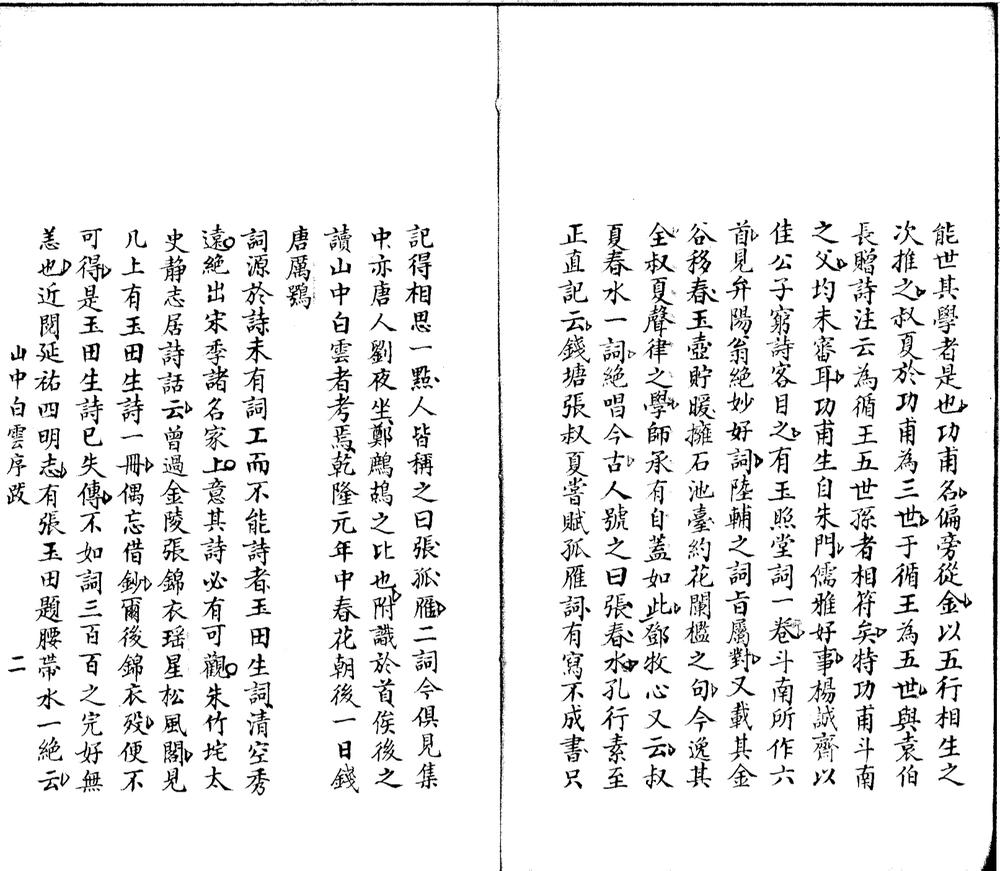 能世其學者是也功甫名偏旁從金以五行相生之
次推之叔夏於功甫為三世于循王為五世與袁伯
長贈詩注云為循王五世孫者相符矣特功甫斗南
之父均未審耳功甫生自朱門儒雅好事楊誠齋以
佳公子窮詩客目之有玉照堂詞一卷斗南所作六
首見弁陽翁絕妙好詞陸輔之詞旨屬對又載其金
谷移春玉壺貯暖擁石池臺約花闌檻之句今逸其
全叔夏聲律之學師承有自蓋如此鄧牧心又云叔
夏春水一詞絕唱今古人號之曰張春水孔行素至
正直記云錢塘張叔夏嘗賦孤雁詞有寫不成書只
記得相思一點人皆稱之曰張孤雁二詞今俱見集
中亦唐人劉夜坐鄭鷓鴣之比也附識於首俟後之
讀山中白雲者考焉乾隆元年中春花朝後一日錢
唐厲鶚
詞源於詩未有詞工而不能詩者玉田生詞清空秀
遠絕出宋季諸名家上意其詩必有可觀朱竹垞太
史靜志居詩話云曾過金陵張錦衣瑶星松風閣見
几上有玉田生詩一冊偶忘借鈔爾後錦衣歿便不
可得是玉田生詩已失傳不如詞三百之完好無
恙也近閱延祐四明志有張玉田題腰帶水一絕云
山中白雲序跋
二